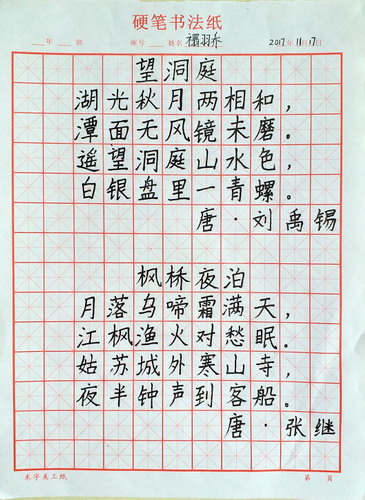 硬笔书法纸
年 班 座号 姓名 2017年11月17日
望洞庭
湖光秋月两相和，
潭面无风镜未磨。
遥望洞庭山水色，
白银盘里一青螺。
唐·刘禹锡
枫桥夜泊
月落乌啼霜满天，
江枫渔火对愁眠。
姑苏城外寒山寺，
夜半钟声到客船。
唐·张继
米字美工纸 第 页